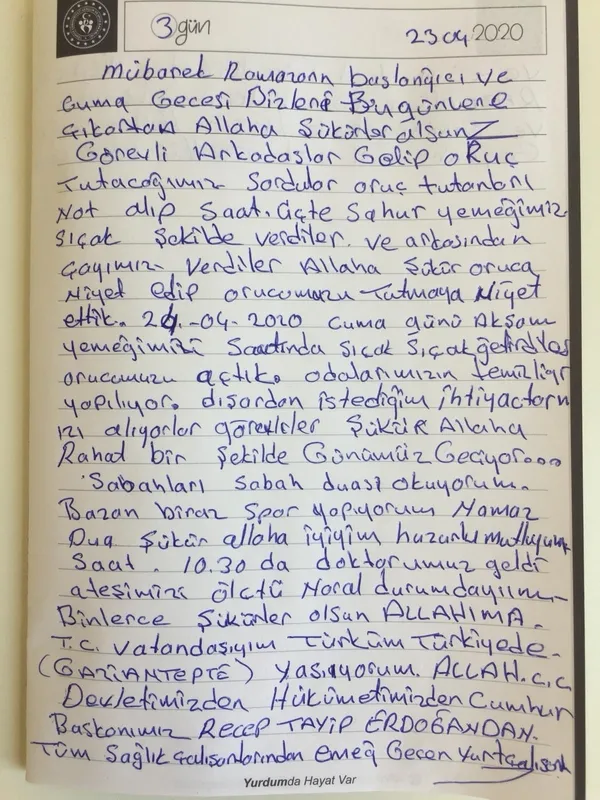 3 gün
23 04 2020
Mübarek Ramazanın başlangıcı ve
Cuma Gecesi Bizleri Bugünlere
çıkartan Allaha Şükürler olsun
Görevli Arkadaşlar Gelip oRuç
Tutacağımızı Sordular oruç tutanları
Not alıp Saat. üçte Sahur yemeğimiz
Sıcak Şekilde verdiler. ve arkasından
çayımızı Verdiler Allaha Şükür oruca
Niyet edip orucumuzu Tutmaya Niyet
ettik. 24.-04-2020 Cuma günü Akşam
yemeğimizi Saatinda Sıcak Sıcak getirdiler
orucumuzu açtık. odalarımızın temizliği
yapılıyor. dışardan istediğim ihtiyaçların
ızı alıyorlar görevliler ŞükÜR Allaha
Rahat bir Şekilde Günümüz Geçiyor...
Sabahları Sabah duası okuyorum.
Bazan biraz Spor yapıyorum Namaz
Dua Şükür allaha iyiyim huzurlu mutluyum
Saat. 10.30 da doktorumuz geldi
ateşimizi ölçtü Noral durumdayım-
Binlerce Şükürler olsun ALLAHIMA.
T.C. Vatandaşıyım Türküm Türkiyede.
(GAZİANTEPTE) Yaşıyorum. ALLAH.c.c
Devletimizden Hükümetimizden Cumhur
Başkanımız RECEP TAYİP ERDOĞANDAN.
Tüm Sağlık çalışanlarından emeğ Geçen Yurt
Yurdumda Hayat Var